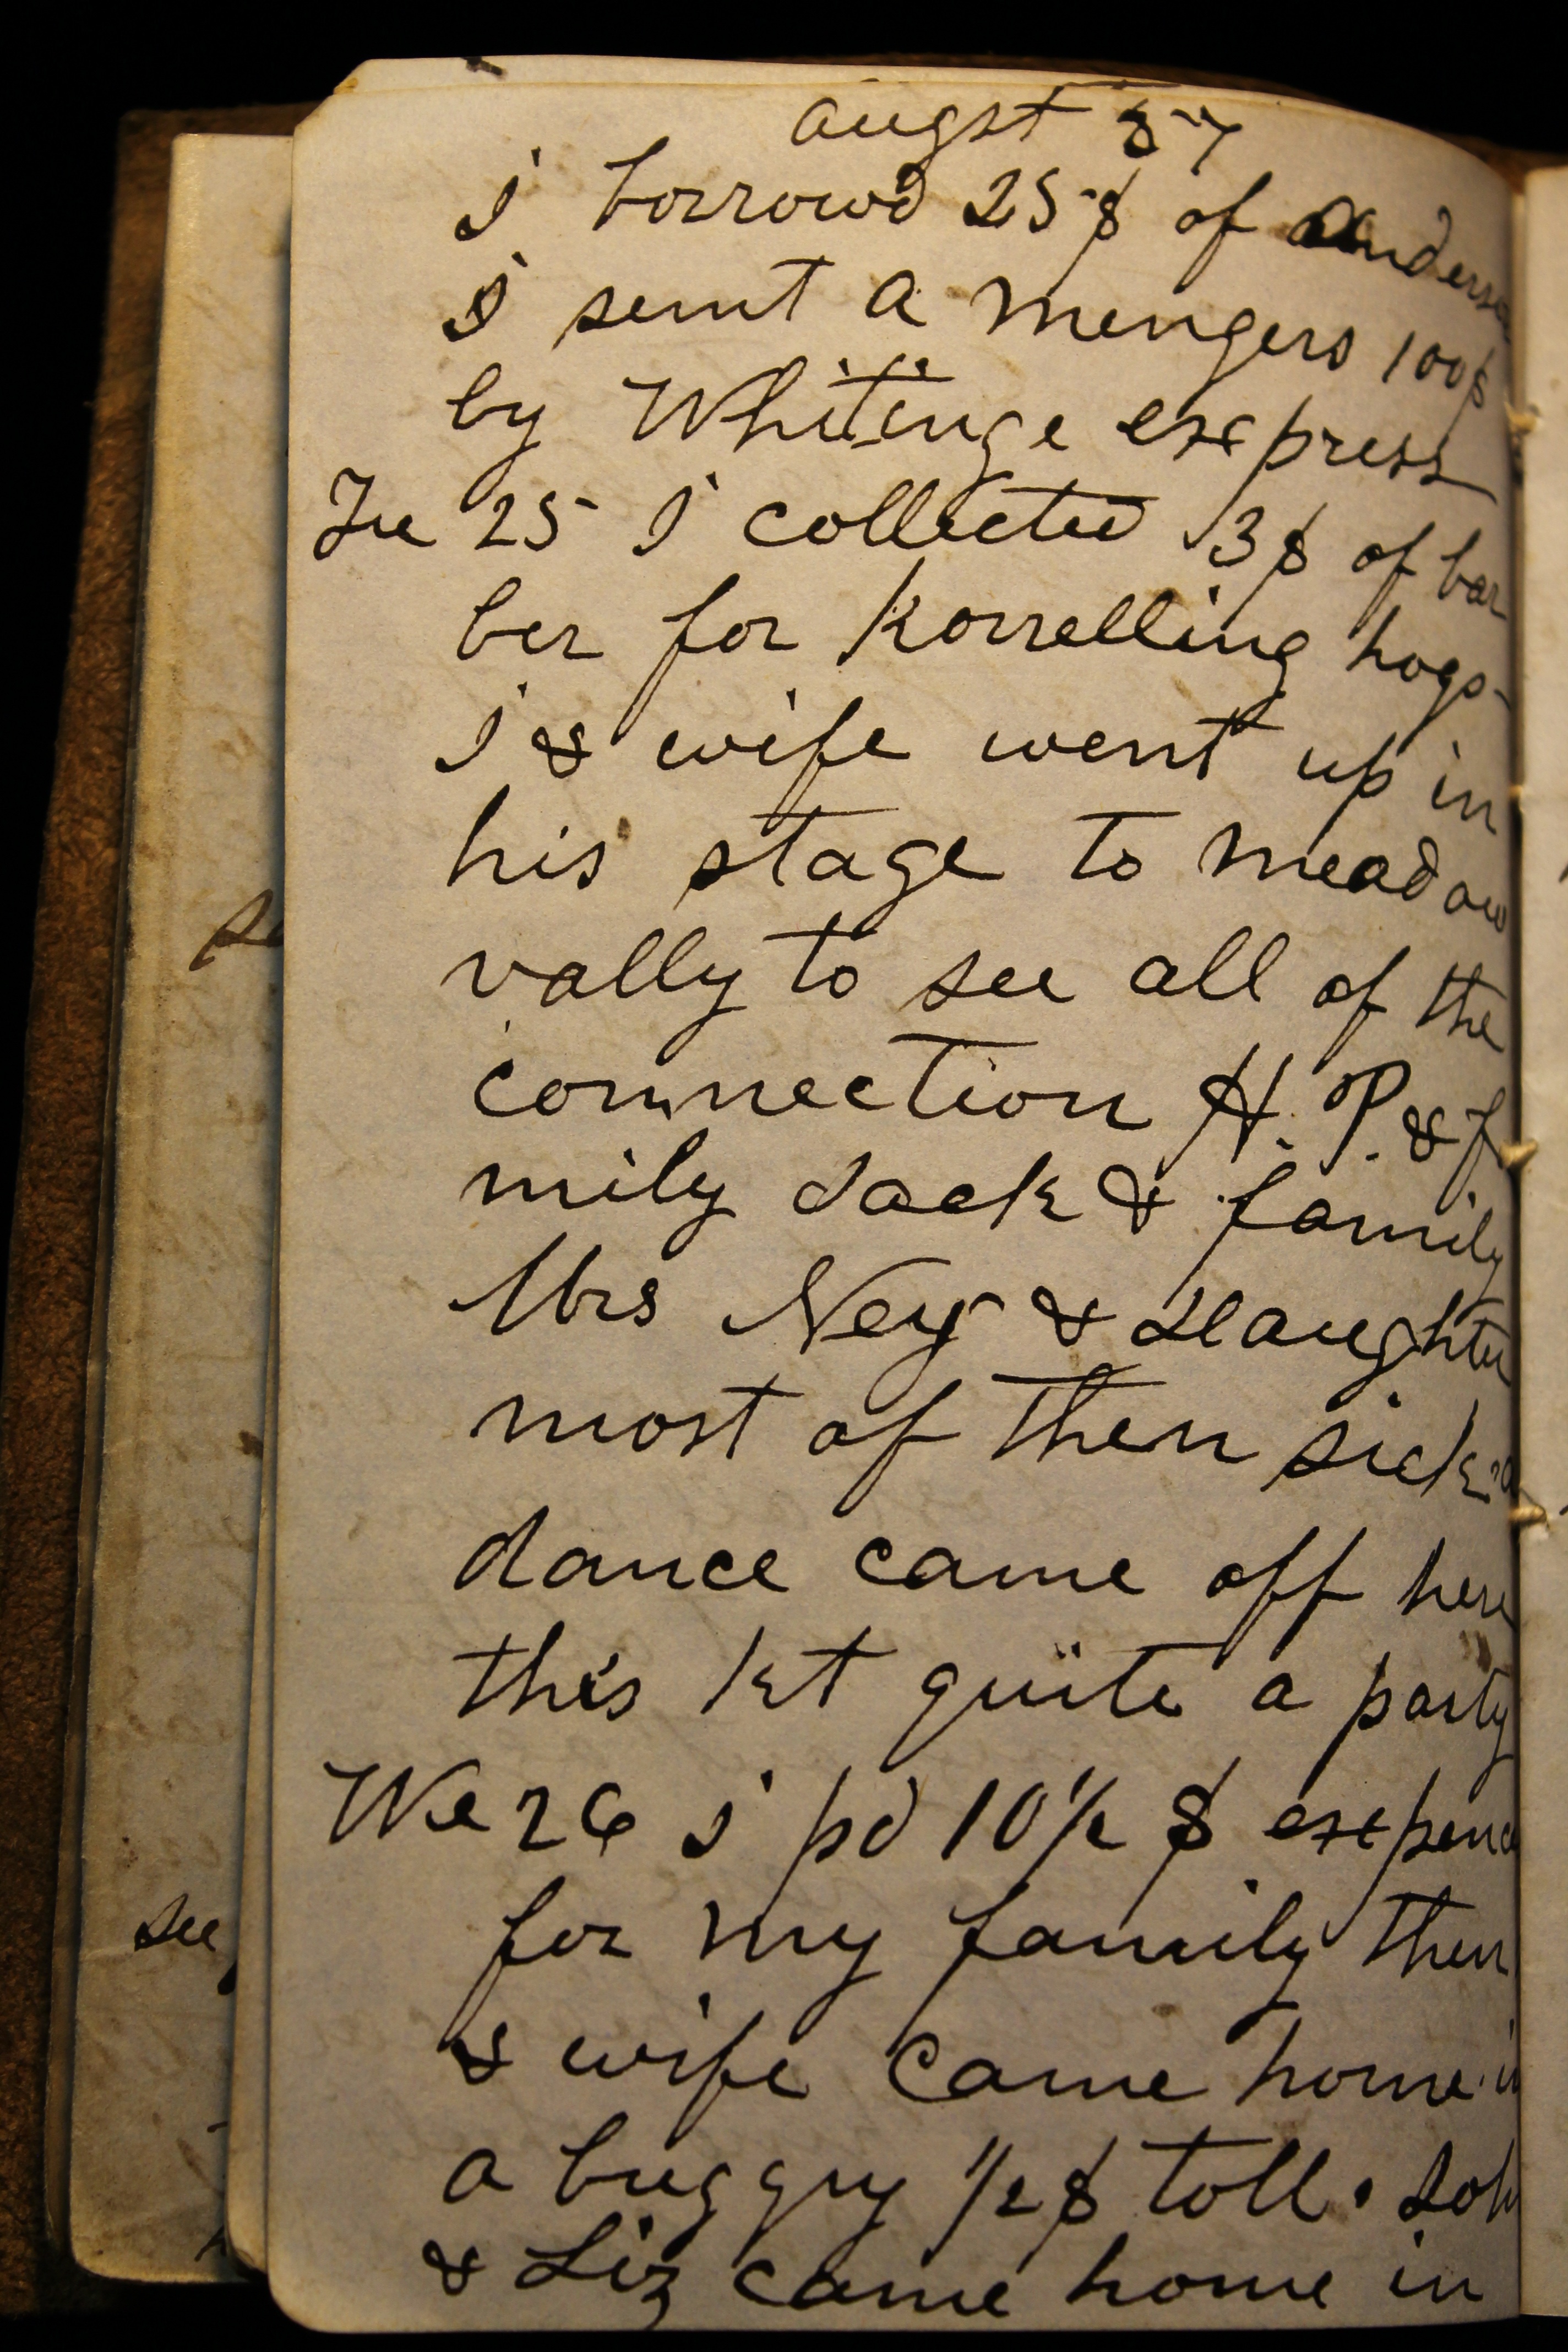 augst 57
I borrowd 25$ of anderso
I sent A mengers 100$
by Whitinge express
Tu 25 I collected 13$ of bar
ber for korrelling hogs
I & wife went up in
his stage to meadow
vally to see all of the
connection H. P. & f
mily Jack & family
Mrs Ney & daughter
most of then sick a
dance came off here
this kt quite a party
We 26 I pd 10½ $ expence
for my family then
& wife came home in
a buggy ½$ toll. Joh
& Liz came home in
se
see